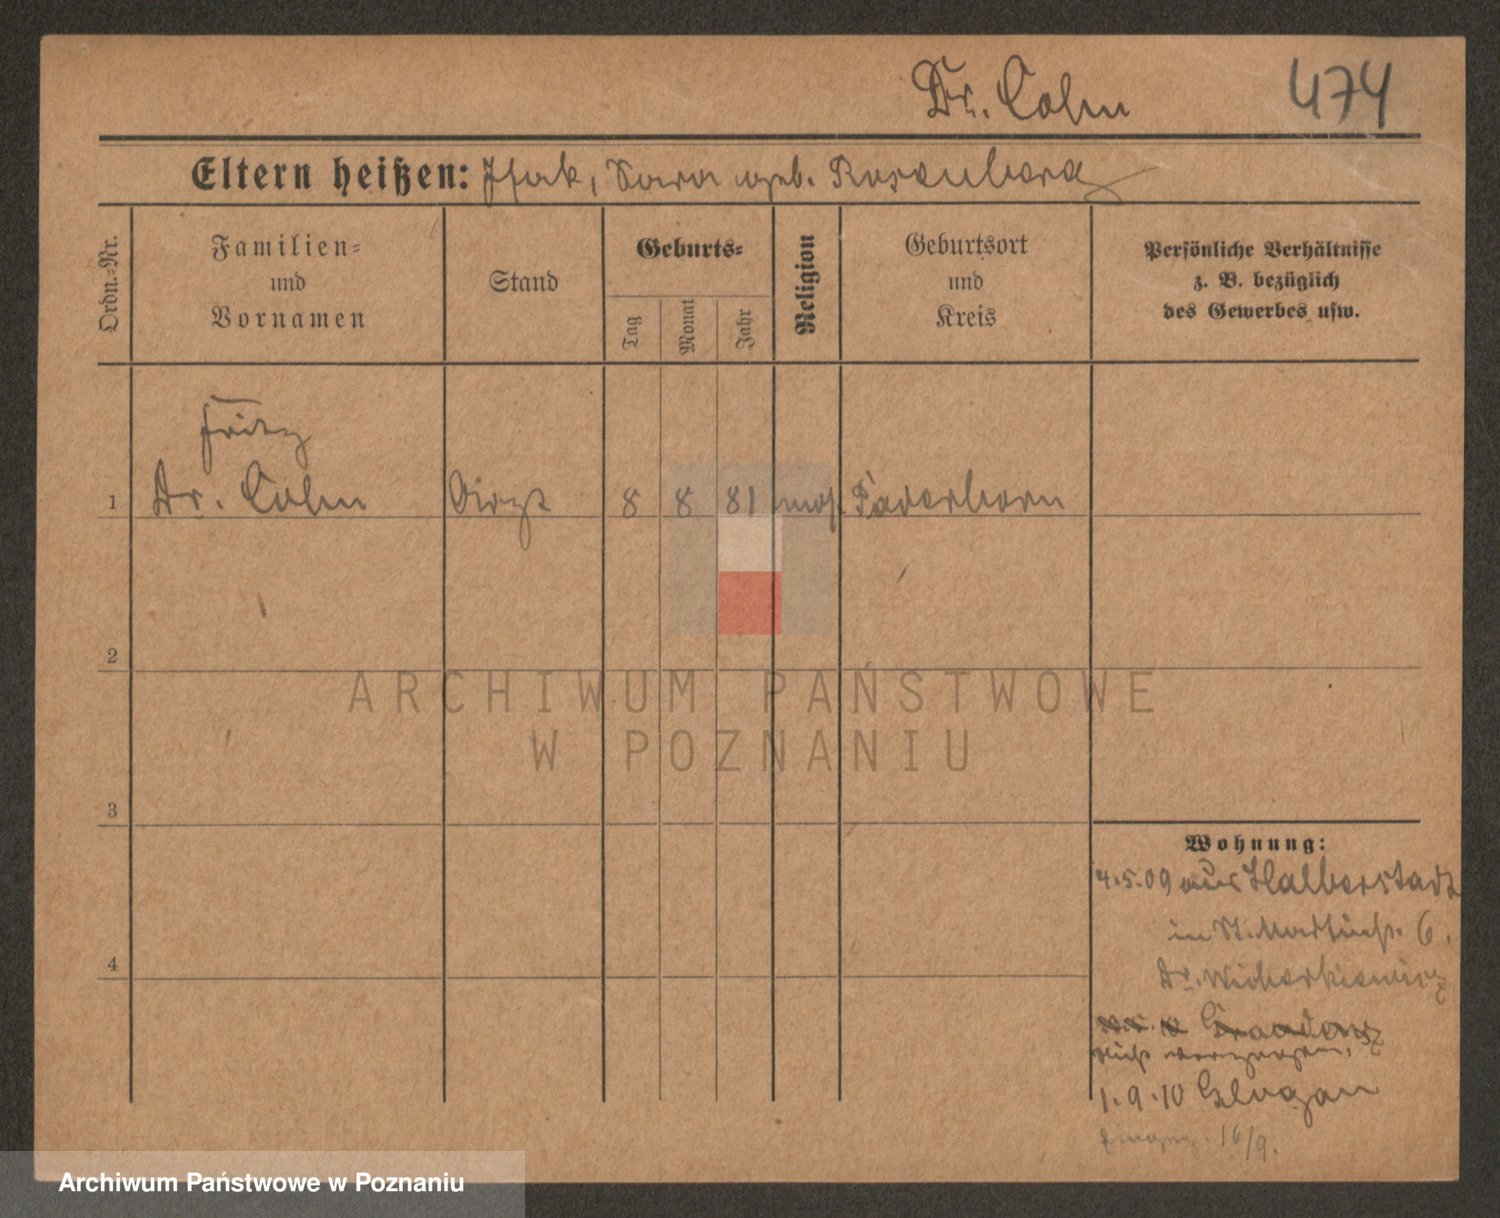 Dr. Cohn 474
Eltern heißen: Isak, Sara geb. Rosenberg
Ordn.-Nr.
Familien-
und
Vornamen
Stand
Geburts-
Tag
Monat
Jahr
Religion
Geburtsort
und
Kreis
Persönliche Verhältnisse
z. B. bezüglich
des Gewerbes usw.
Fritz
1 Dr. Cohn Arzt 8 8 81 mos. Paderborn
2
3
4
Wohnung:
4.5.09 aus Halberstadt
in St. Martinstr. 6.
Dr. Wicherkiewicz
Graudenz
nicht verzogen,
1.9.10 Glogau
16/9.
ARCHIWUM PAŃSTWOWE
W POZNANIU
Archiwum Państwowe w Poznaniu